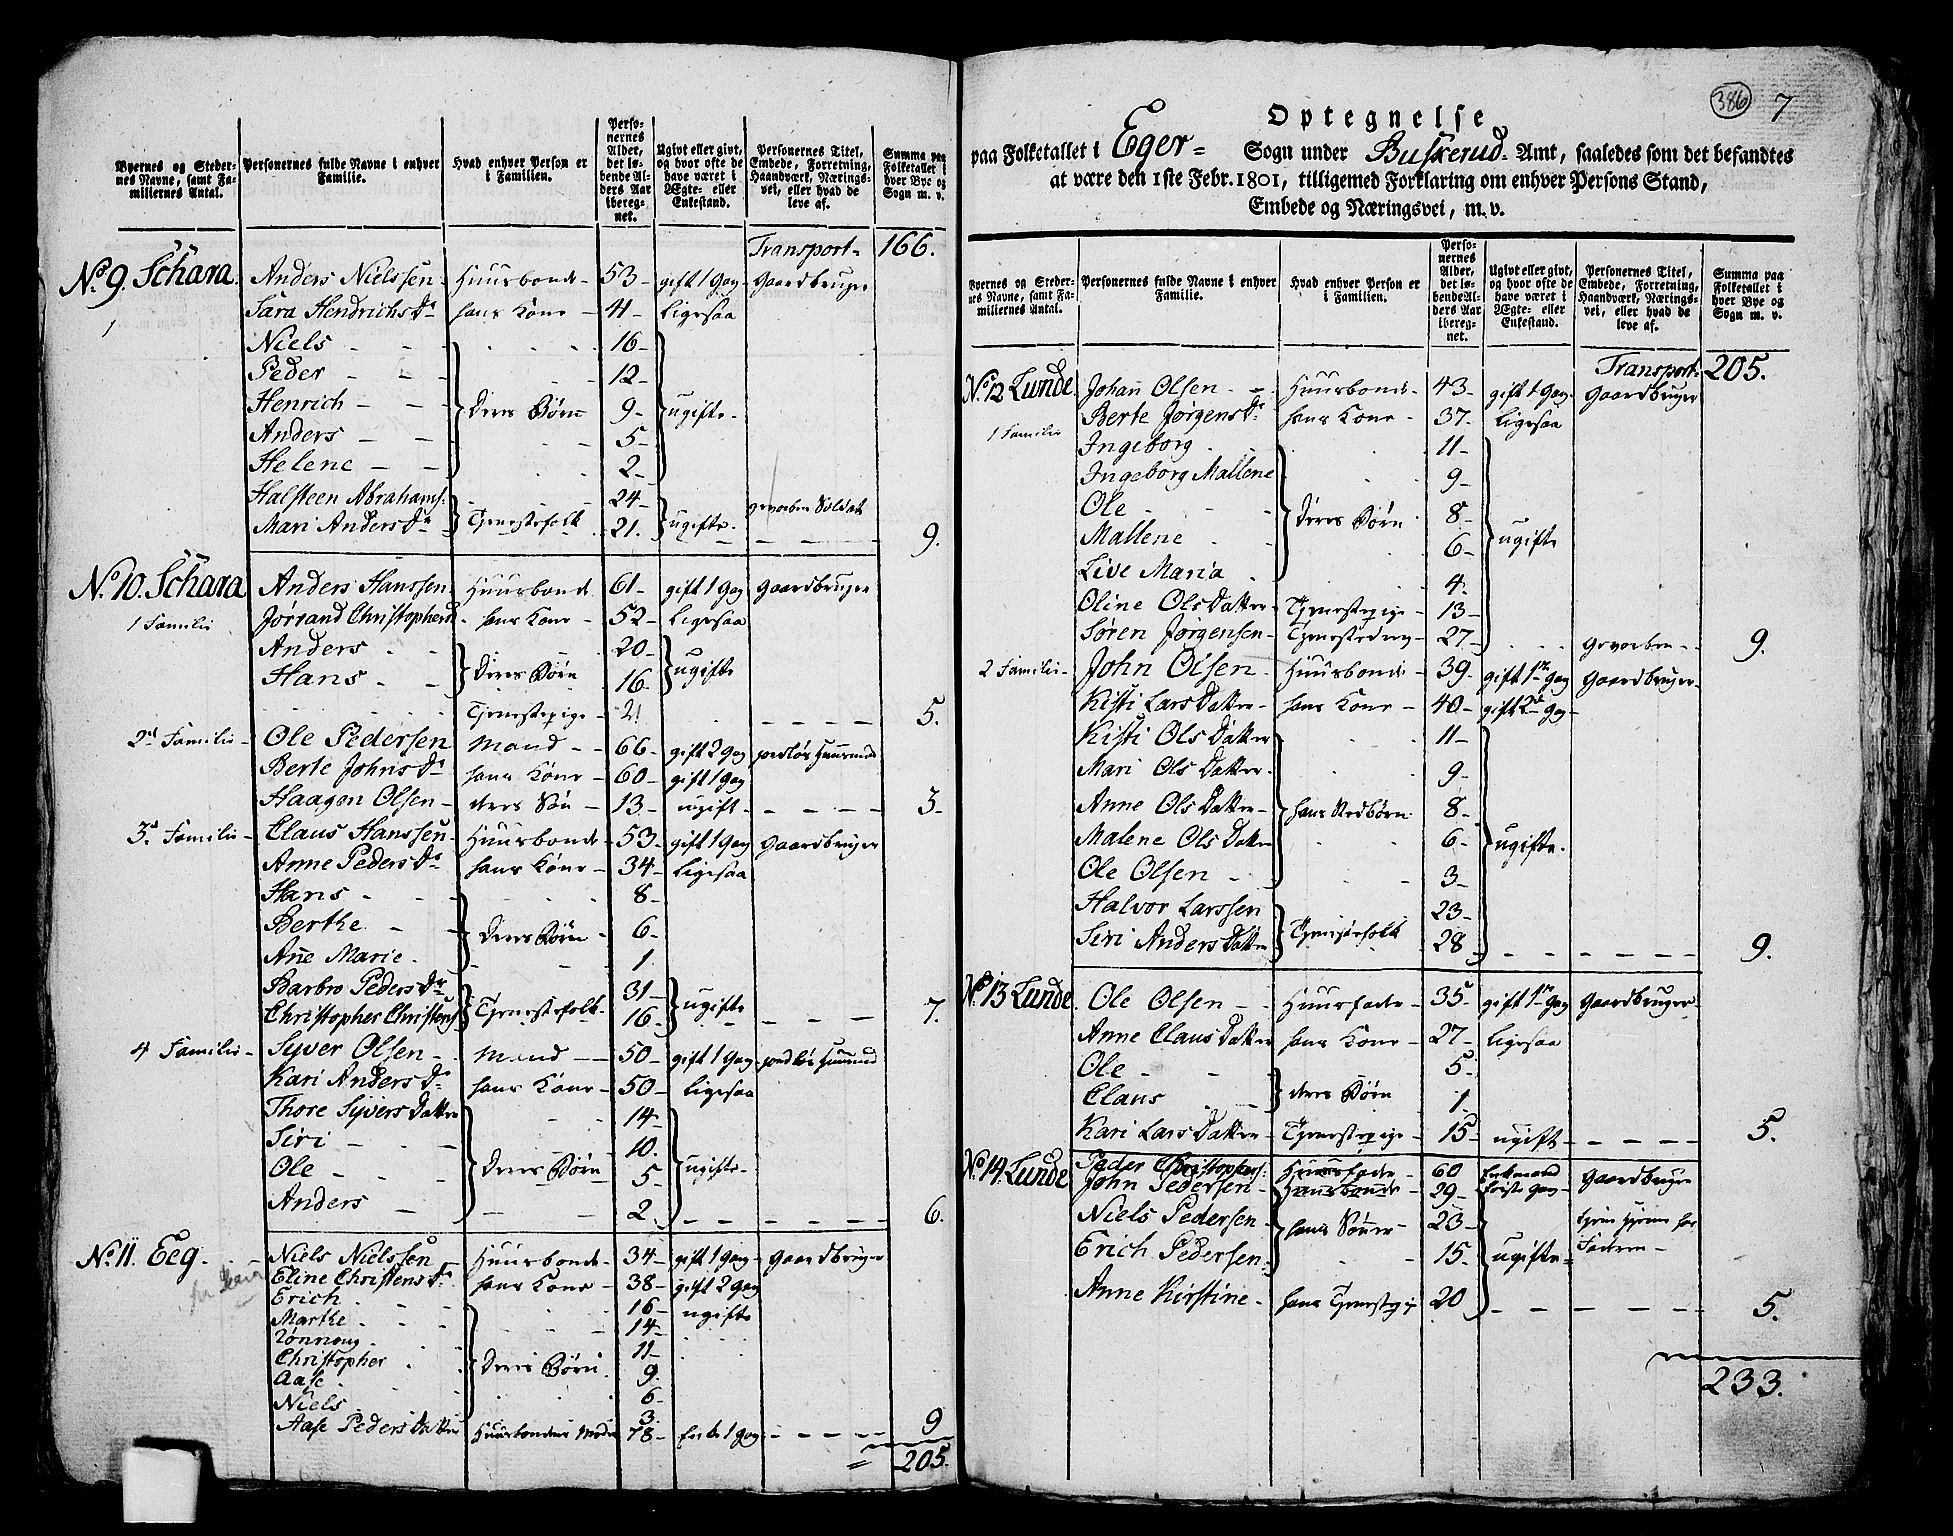 Byernes og Stedernes Navne, samt Familiernes Antal. | Personernes fulde Navne i enhver Familie. | Hvad enhver Person er i Familien. | Personernes Alder, det løbende Alders Aar iberegnet. | Ugivt eller givt, og hvor ofte de have været i Ægte- eller Enkestand. | Personernes Titel, Embede, Forretning, Haandværk, Næringsvei, eller hvad de leve af. | Summa paa Folketallet i hver Bye og Sogn m. v.
Transport- 166.
No. 9. Schara. Anders Nielssen Huusbonde- 53- gift 1 Gang Gaardbruger
1 Sara Hendrichs Dr hans Kone - 41- Ligesaa
Niels - - - 16-
Peder - - 12-
Henrich - - Deres Børn 9- ugifte-
Anders - - 5-
Helene - - 2-
Halsteen Abrahams: 24- gevorben Soldat
Mari Anders Dr Tjenestefolk 21. ugifte. - - - 9.
No. 10. Schara Anders Hanssen Huusbonde 61- gift 1 Gang Gaardbruger
1 Familie Jørand Christophers hans Kone - 52- Ligesaa
Anders - - 20-
Hans - - Deres Børn 16. ugifte
Tjenestepige- 21 - - - - 5.
2d Familie- Ole Pedersen Mand - - 66- gift 2 Gang jordløs Huusmand
Berte Johns Dr hans Kone - 60- gift 1 Gang
Haagen Olsen - deres Søn - 13- ugift- - - - - 3-
3d Familie- Claus Hanssen- Huusbonde- 53- gift 1 Gang Gaardbruger
Anne Peders Dr hans Kone - 34- Ligesaa
Hans - - - 8-
Berthe - - Deres Børn - 6-
Ane Marie - 1
Barbro Peders Dr 31-
Christopher Christens Tjenestefolk- 16- ugifte - - - 7.
4 Familie- Syver Olsen - Mand - - 50- gift 1 Gang jordløs Huusmand
Kari Anders Dr hans Kone - 50- Ligesaa
Thore Syvers Datter 14-
Siri - - - 10.
Ole - - - Deres Børn 5- ugifte-
Anders - 2. - - - - 6.
No. 11. Eeg. Niels Nielssen Huusbonde- 34- gift 1 Gang- Gaardbruger
Eline Christens Dr hans Kone - 38- gift 2 Gang
Erich - - 16- ugifte
Marthe - - 14-
Rønnoug - 11-
Christopher - Deres Børn 9.
Aase - 6-
Niels - 3.
Aase Peders Datter Huusbondens Moder 78- Enke 1 Gang - - - - 9
205.
386 7
Optegnelse
paa Folketallet i Eger- Sogn under Buskerud- Amt, saaledes som det befandtes
at være den 1ste Febr. 1801, tilligemed Forklaring om enhver Persons Stand,
Embede og Næringsvei, m. v.
Byernes og Stedernes Navne, samt Familiernes Antal. | Personernes fulde Navne i enhver Familie. | Hvad enhver Person er i Familien. | Personernes Alder, det løbende Alders Aar iberegnet. | Ugivt eller givt, og hvor ofte de have været i Ægte- eller Enkestand. | Personernes Titel, Embede, Forretning, Haandværk, Næringsvei, eller hvad de leve af. | Summa paa Folketallet i hver Bye og Sogn m. v.
Transport- 205.
No. 12 Lunde. Johan Olsen - - Huusbonde- 43- gift 1 Gang- Gaardbruger
1 Familie Berte Jørgens Dr hans Kone - 37- Ligesaa
Ingeborg - - 11-
Ingeborg Mallene 9-
Ole - - - Deres Børn 8-
Mallene - - 6- ugifte
Live Maria - 4-
Oline Ols Datter- Tjenestepige- 13-
Søren Jørgensen- Tjenestedreng- 27- - - - Gevorben - - 9.
2 Familie- John Olsen Huusbonde- 39. gift 1ste Gang Gaardbruger-
Kisti Lars Datter- hans Kone - 40- gift 2de Gang-
Kisti Ols Datter 11-
Mari Ols Datter- 9-
Anne Ols Datter- hans Stedbørn 8-
Malene Ols Datter 6- ugifte.
Ole Olsen - 3-
Halvor Larssen 23-
Siri Anders Datter Tjenestefolk 28- - - - - - 9.
No. 13 Lunde. Ole Olsen - - Huusfader- 35- gift 1ste Gang Gaardbruger
Anne Claus Datter hans Kone - 27- Ligesaa
Ole - - - 5-
Claus - - deres Børn 1.
Kari Lars Datter- Tjenestepige- 15- ugift- - - - - 5.
No. 14. Lunde. Peder Christophers: Huusfader- 60 Enkemand Gaardbruger
John Pedersen- Huusbonde- 29- første Gang-
Niels Pedersen- hans Sønner- 23- tjene hjeme hos
Erich Pedersen- 15. ugifte- Faderen-
Anne Kirstine- hans Tjenestepige 20 - - - - - 5.
233.